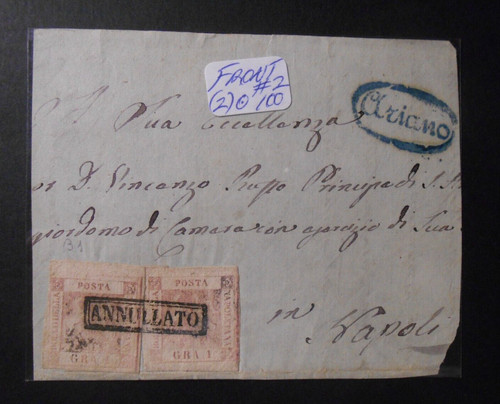 FRONT
#2
(2) ⊙ 100
Ariano
A Sua Eccellenza
D. Vincenzo Ruffo Principe di S.
giordomo di Camara con esercizio di Sua
in
Napoli
31
POSTA
GRA 1
POSTA
GRA 1
ANNULLATO